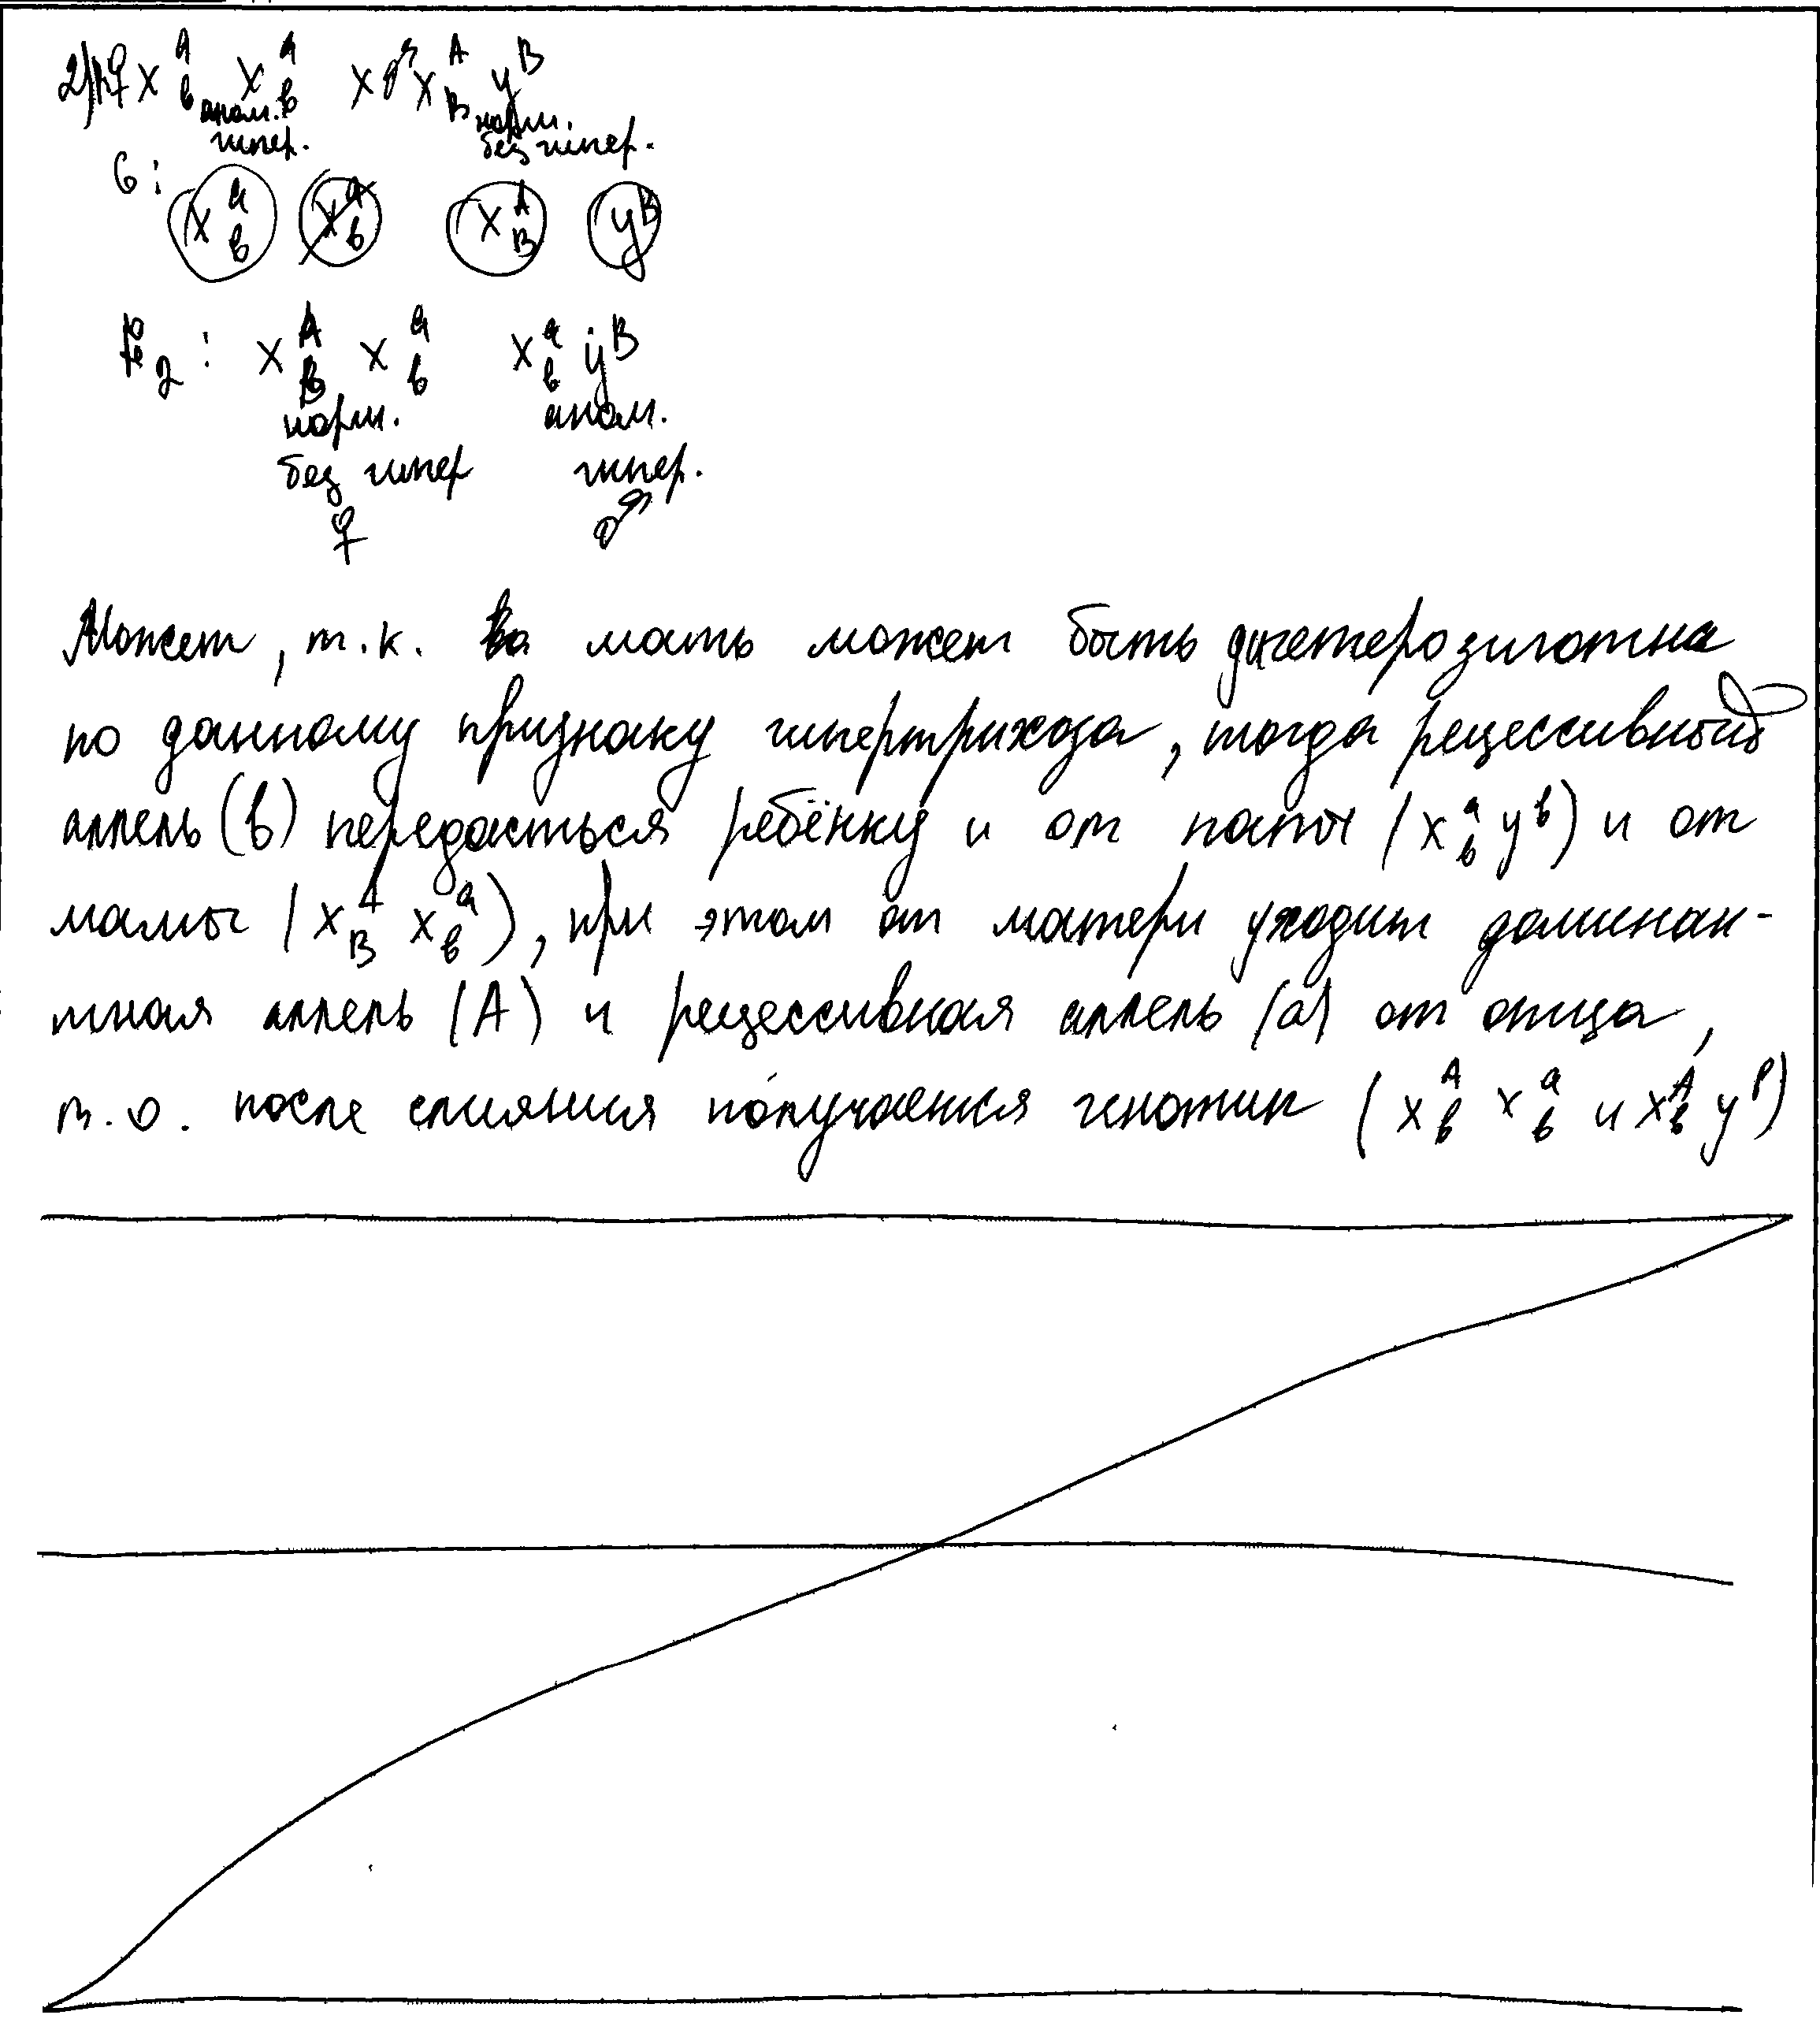 2) P ♀ X^a_в X^a_в x ♂ X^A_В y^В
аном. норм.
гипер. без гипер.
G: X^a_в X^a_в X^A_В y^В
F2: X^A_В X^a_в X^a_в y^В
норм. аном.
без гипер гипер.
♀ ♂
Может, т.к. мать может быть дигетерозиготна
по данному признаку гипертрихоза, тогда рецессивный
аллель (в) передасться ребёнку и от папы (X^a_в y^в) и от
мамы (X^A_В X^a_в), при этом от матери уходит доминан-
тная аллель (А) и рецессивная аллель (а) от отца,
т.о. после слияния получается генотип (X^A_в X^a_в и X^A_в y^в)